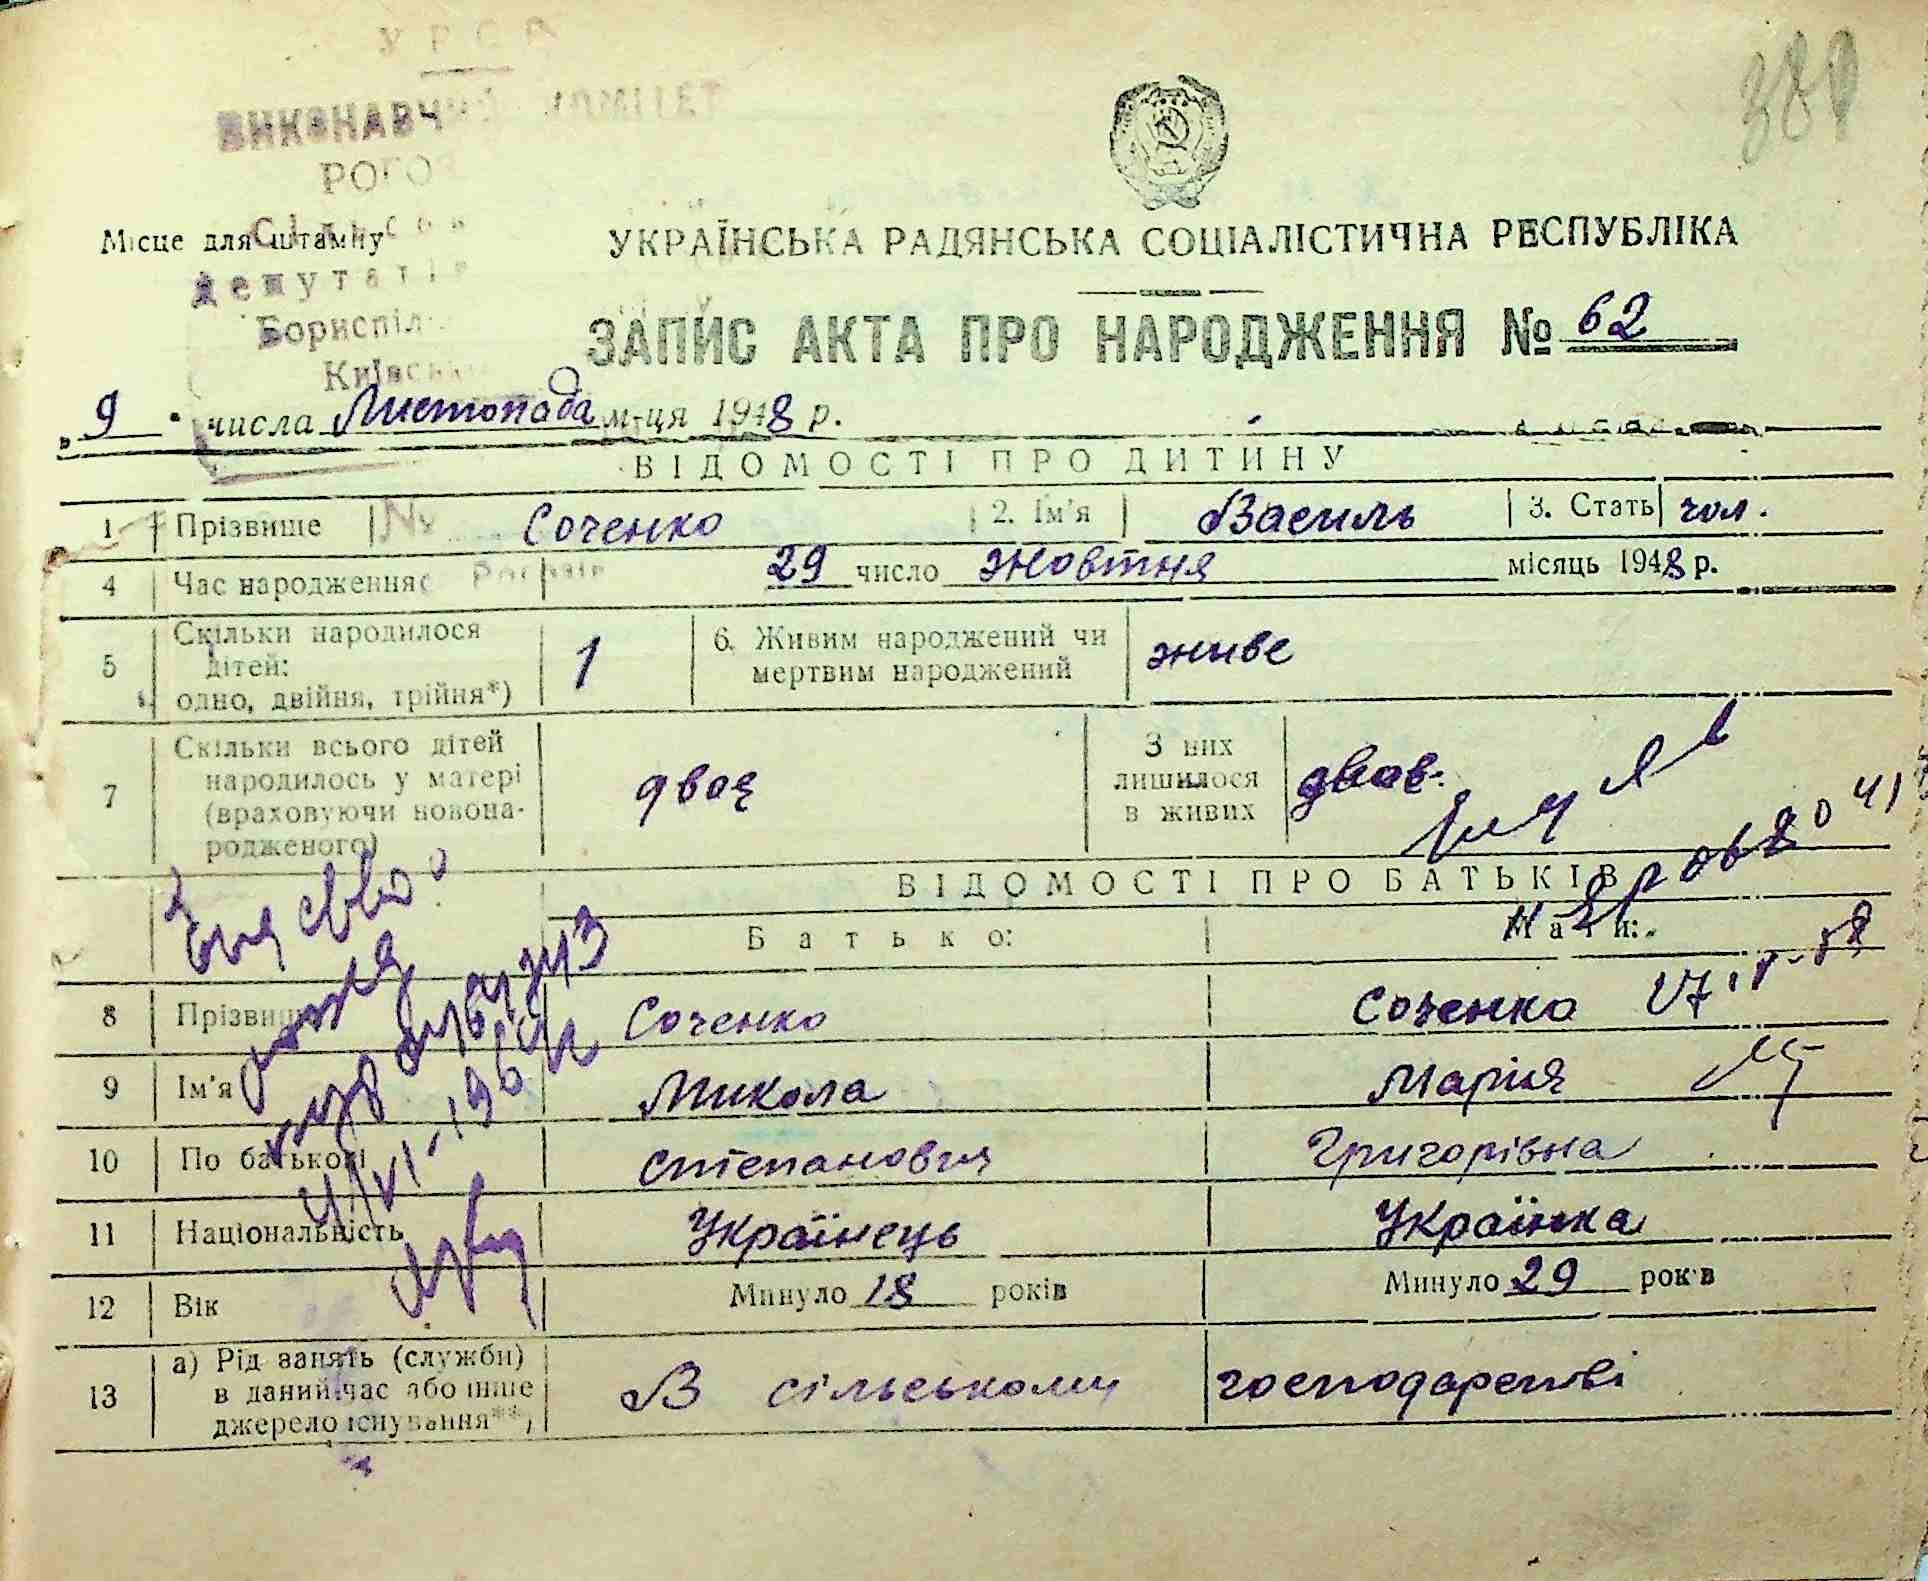 УРСР
380
ВИКОНАВЧ
РОГОЗ
Місце для штампу
УКРАЇНСЬКА РАДЯНСЬКА СОЦІАЛІСТИЧНА РЕСПУБЛІКА
депутатів
Бориспіл
Київськ
ЗАПИС АКТА ПРО НАРОДЖЕННЯ № 62
„9“ числа Листопада м-ця 1948 р.
ВІДОМОСТІ ПРО ДИТИНУ
1 Прізвище Соченко 2. Ім'я Василь 3. Стать чол.
4 Час народження 29 число жовтня місяць 1948 р.
5 Скільки народилося дітей: одно, двійня, трійня*) 1 6. Живим народжений чи мертвим народжений живе
7 Скільки всього дітей народилось у матері (враховуючи новонародженого) двоє З них лишилося в живих двоє
ВІДОМОСТІ ПРО БАТЬКІВ
Батько: Мати:
8 Прізвище Соченко Соченко
9 Ім'я Микола Марія
10 По батькові Степанович Григорівна
11 Національність Українець Українка
12 Вік Минуло 18 років Минуло 29 років
13 а) Рід занять (служби) в даний час або інше джерело існування**) В сільському господарстві